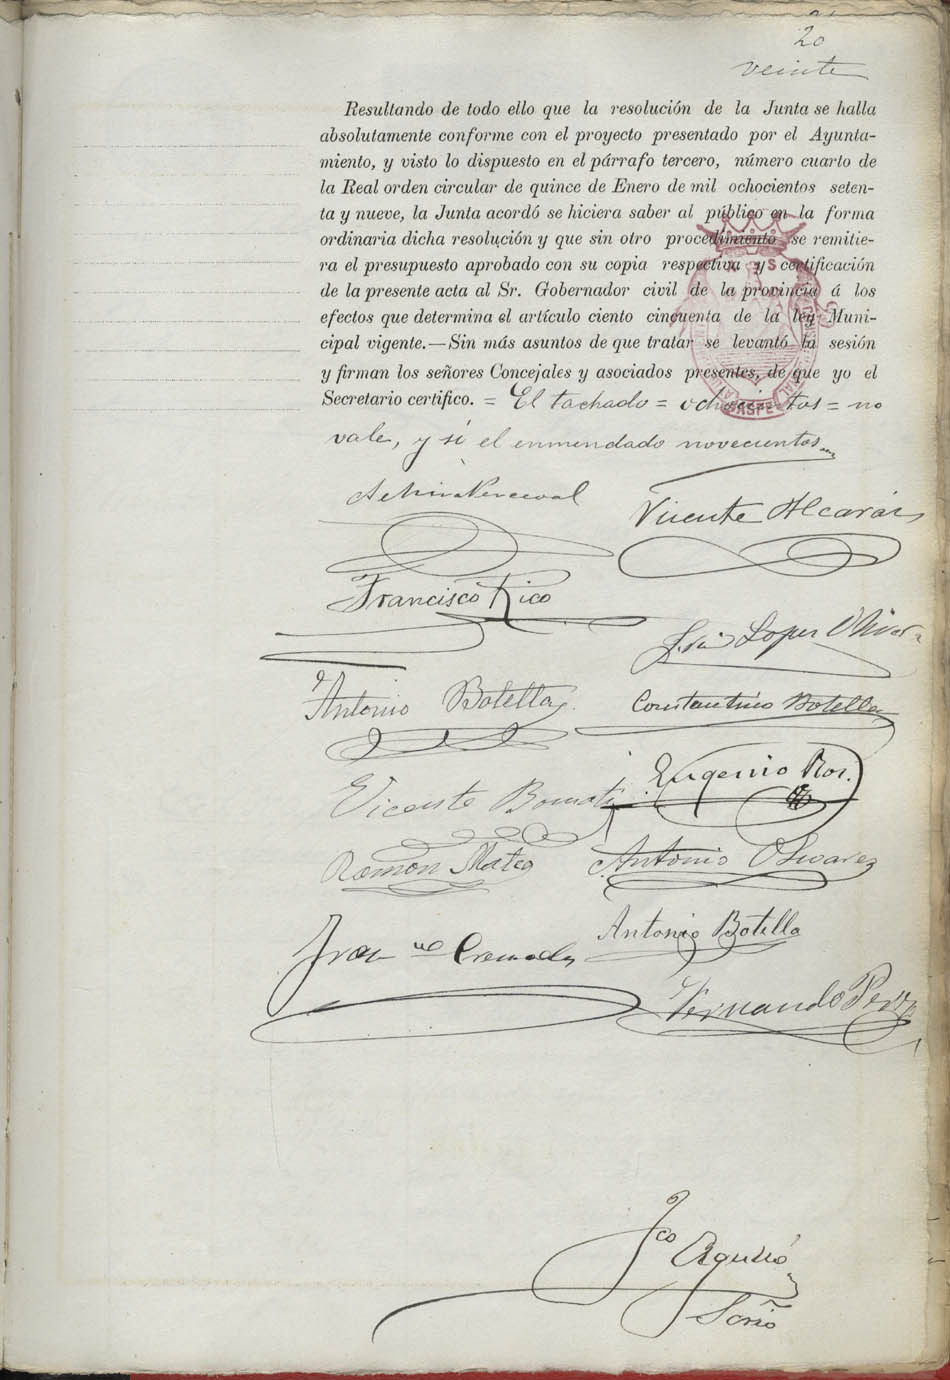 20
veinte
Resultando de todo ello que la resolución de la Junta se halla
absolutamente conforme con el proyecto presentado por el Ayunta-
miento, y visto lo dispuesto en el párrafo tercero, número cuarto de
la Real orden circular de quince de Enero de mil ochocientos seten-
ta y nueve, la Junta acordó se hiciera saber al público en la forma
ordinaria dicha resolución y que sin otro procedimiento se remitie-
ra el presupuesto aprobado con su copia respectiva y certificación
de la presente acta al Sr. Gobernador civil de la provincia á los
efectos que determina el artículo ciento cincuenta de la ley Muni-
cipal vigente.—Sin más asuntos de que tratar se levantó la sesión
y firman los señores Concejales y asociados presentes, de que yo el
Secretario certifico. = El tachado = ochocientos = no
vale, y sí el enmendado novecientos
Vicente Alcaráz
Francisco Rico
Luis Lopez Olivares
Antonio Botella
Constantino Botella
Eugenio Ros.
Vicente Bomati
Ramon Mateo
Antonio Olivarez
Antonio Botella
Franco Cremades
Fernando Perez
Fco Agulló
Scrio